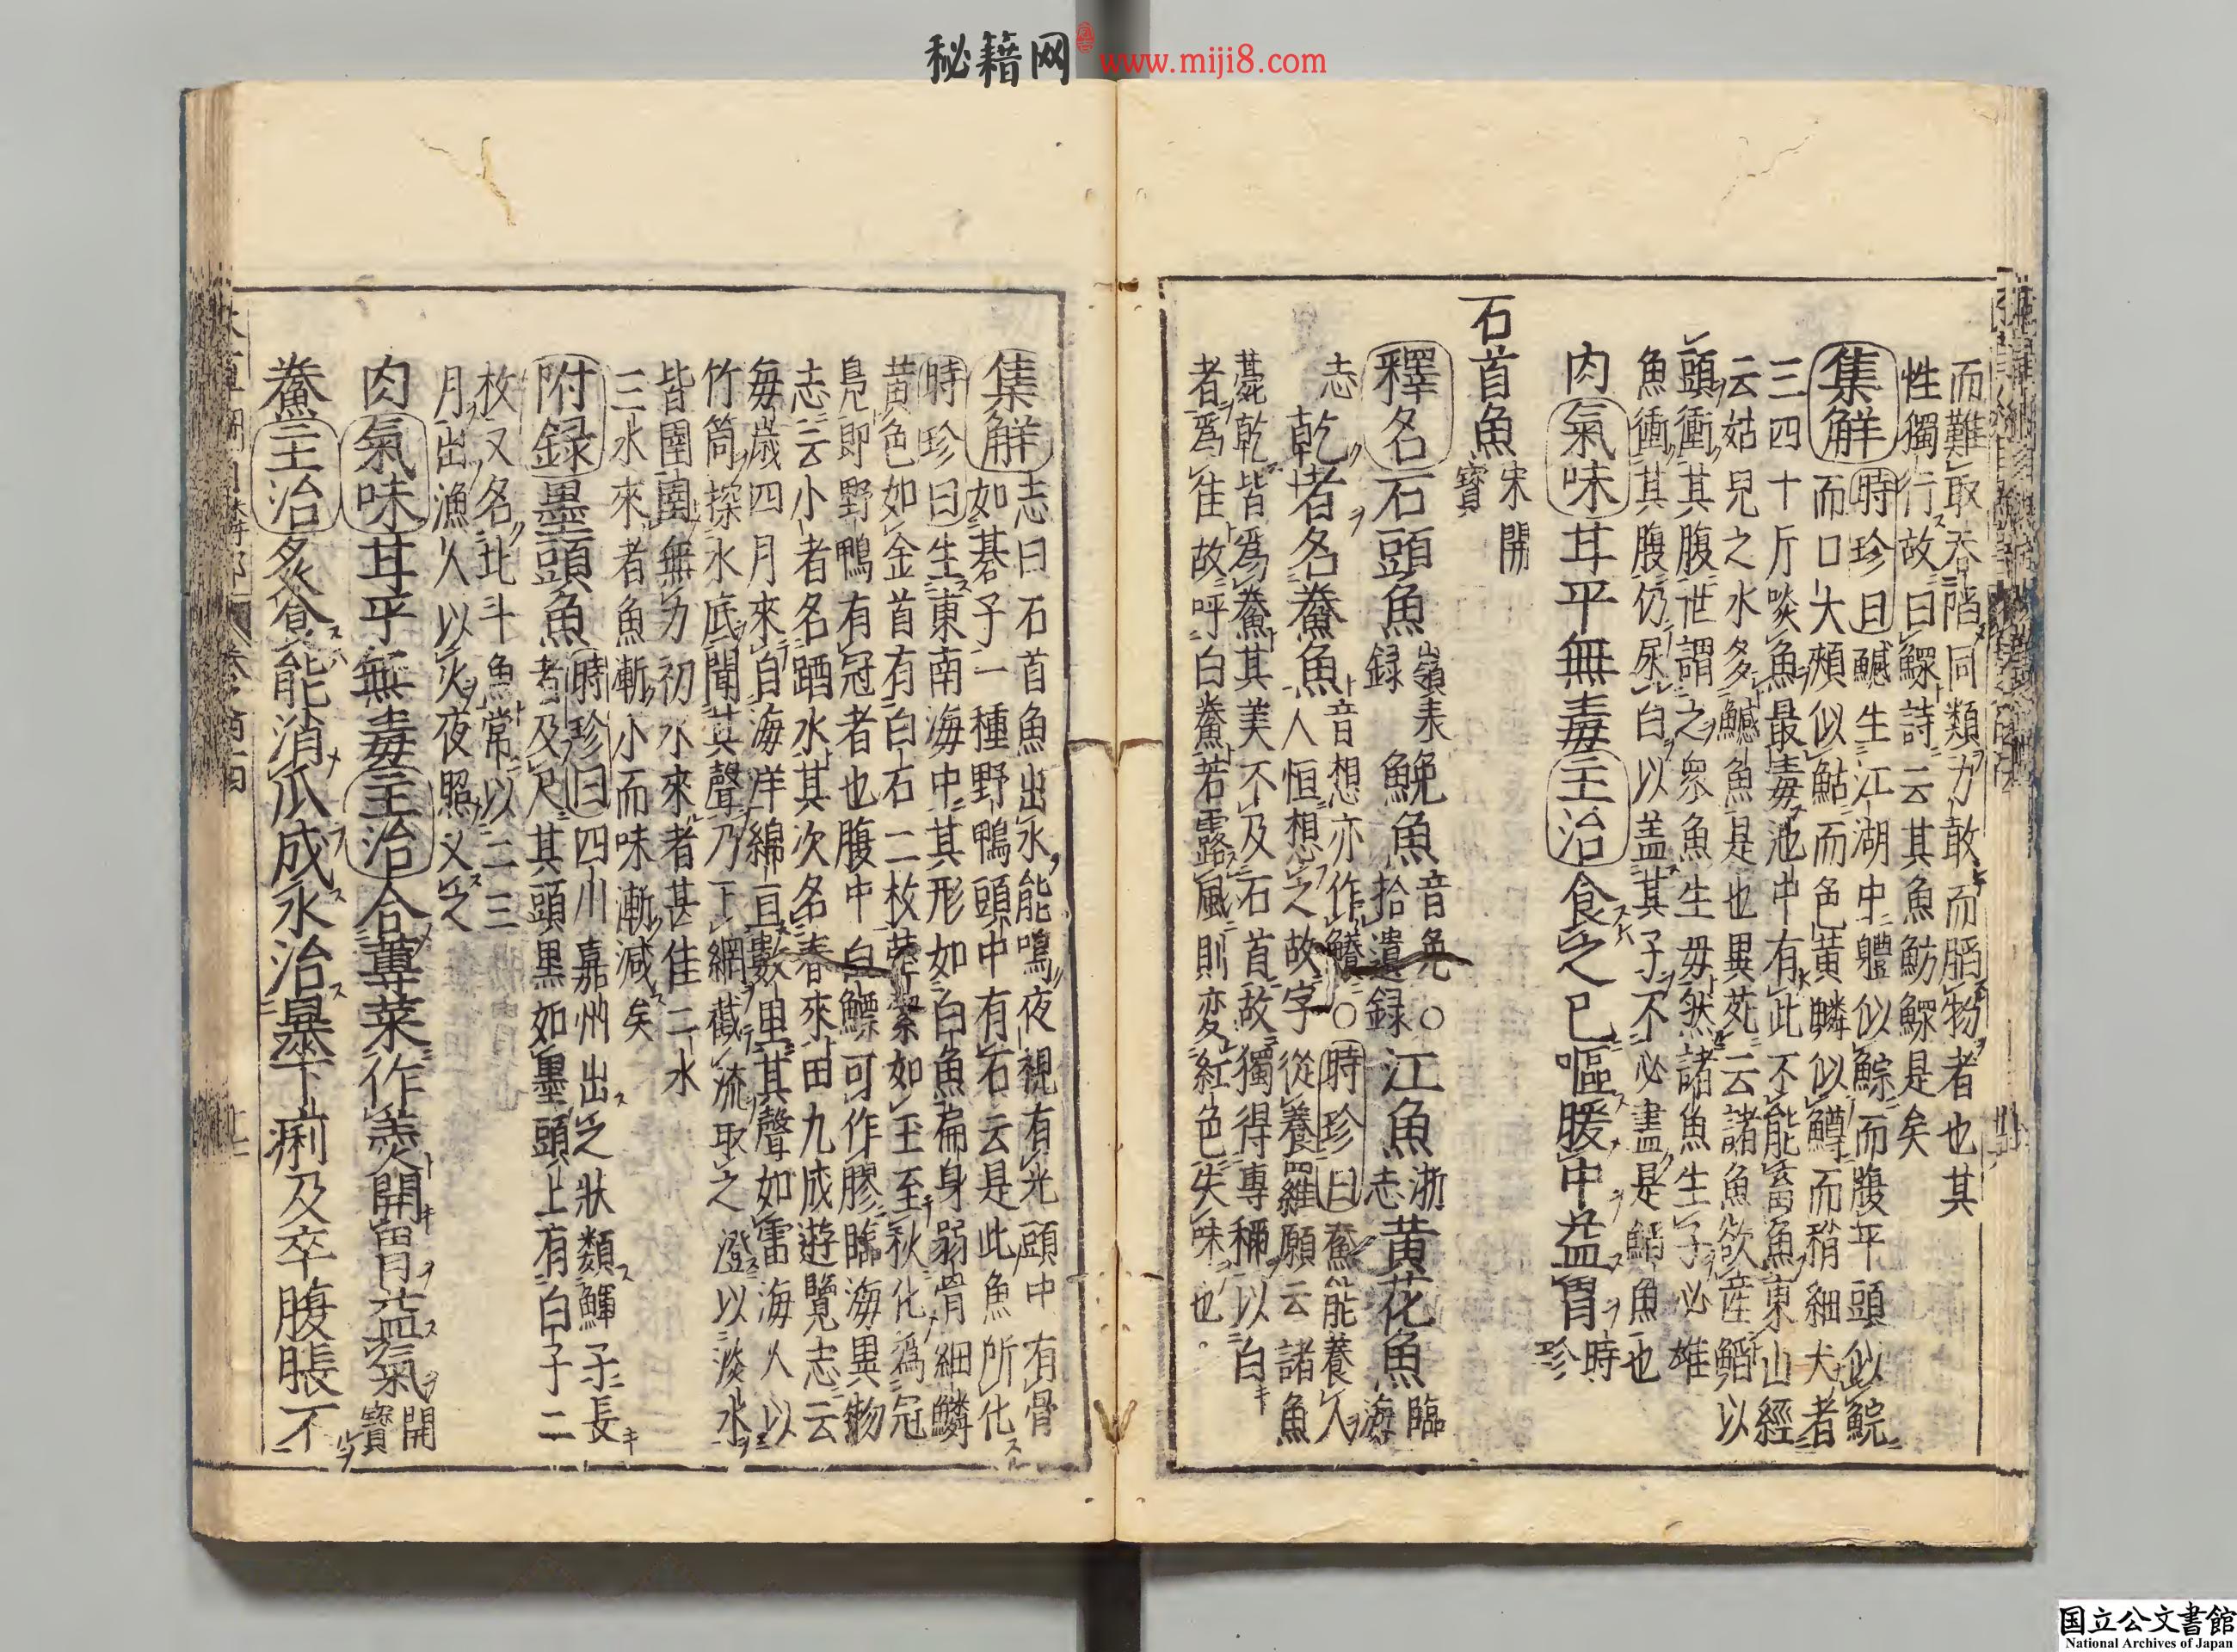 秘籍网 www.miji8.com
而難取吞陷同類力敢而䐧物者也其
性獨行故曰鰥詩云其魚魴鰥是矣
集解 時珍曰鱤生江湖中體似鯮而腹平頭似鯇
而口大頰似鮎而色黃鱗似鱒而稍細大者
三四十斤啖魚最毒池中有此不能畜魚東山經
云姑兒之水多鱤魚是也異苑云諸魚欲產鮥以
頭衝其腹世謂之眾魚生母然諸魚生子必雄
魚衝其腹仍尿白以盖其子不必盡是鮥魚也
肉 氣味 甘平無毒 主治 食之已嘔暖中益胃 時珍
石首魚 宋開寶
釋名 石頭魚 嶺表錄 鮸魚 音免○拾遺錄 江魚 浙志 黃花魚 臨海志
乾者名鮝魚 音想亦作鱶○時珍曰鮝能養人
人恒想之故字從養羅願云諸魚
薧乾皆為鮝其美不及石首故獨得專稱以白
者為佳故呼白鮝若露風則変紅色失味也
集解 志曰石首魚出水能鳴夜視有光頭中有骨
如棊子一種野鴨頭中有石云是此魚所化
時珍曰生東南海中其形如白魚扁身弱骨細鱗
黃色如金首有白石二枚瑩潔如玉至秋化為冠
鳧即野鴨有冠者也腹中白鰾可作膠臨海異物
志云小者名踏水其次名春來田九成遊覽志云
每歲四月來自海洋綿亘數里其聲如雷海人以
竹筒探水底聞其聲乃下網截流取之潑以淡水
皆圉圉無力初水來者甚佳二水
三水來者魚漸小而味漸減矣
附録 墨頭魚 時珍曰四川嘉州出之狀類鯶子長
者及尺其頭黑如墨頭上有白子二
枚又名北斗魚常以二三
月出漁人以火夜照叉之
肉 氣味 甘平無毒 主治 合蓴菜作羹開胃益氣 開寶
鮝 主治 炙食能消瓜成水治暴下痢及卒腹脹不
国立公文書館
National Archives of Japan